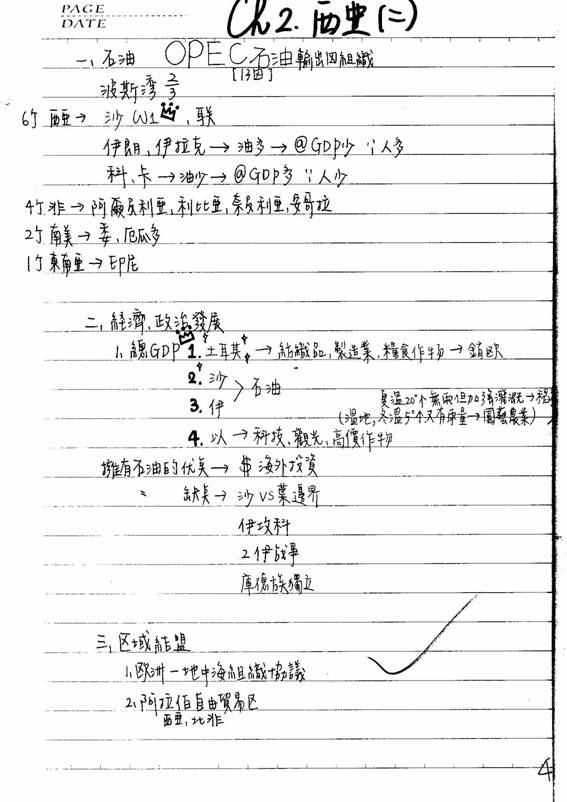 PAGE
DATE
Ch2. 西亜(二)
一、石油 OPEC石油輸出囯組織
[13囯]
波斯湾 2/3
6个 西亜→ 沙 W1、联
伊朗、伊拉克→油多→@GDP少 ∵人多
科、卡→油少→@GDP多 ∵人少
4个 非→阿爾及利亜、利比亜、奈及利亜、安哥拉
2个 南美→委、厄瓜多
1个 東南亜→印尼
二、経濟、政治發展
1. 總GDP 1. 土耳其→紡織品、製造業、糧食作物→銷欧
2. 沙
3. 伊 > 石油
夏溫20°个無雨但加強灌溉→
(溫地,冬溫5°个又有雨量→園藝農業)
4. 以→科技、觀光、高價作物
擁有石油的优点→$海外投資
〃 缺点→沙VS葉邊界
伊攻科
2伊战爭
庫德族獨立
三、区域結盟
1. 欧洲一地中海組織協議
2. 阿拉伯自由貿易区
西亜、北非
4